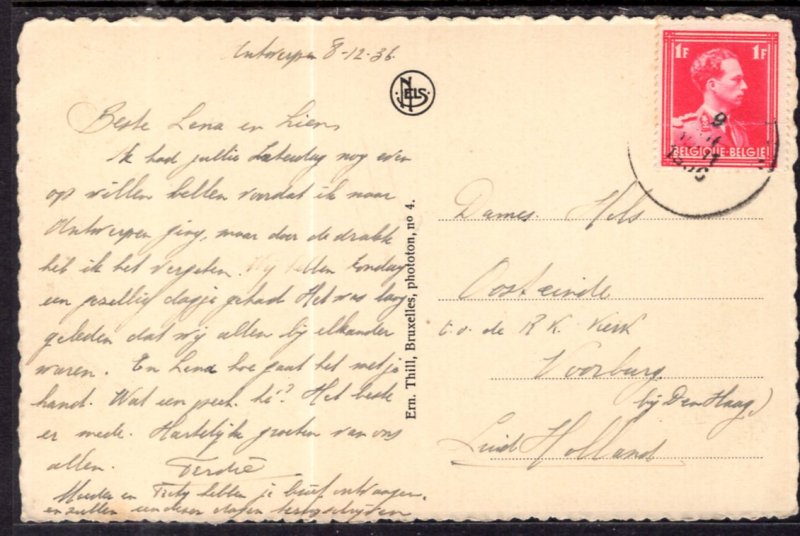 Antwerpen 8-12-36.
NELS
Beste Lena en Liens
Ik had jullie Zaterdag nog even
op willen bellen voordat ik naar
Antwerpen ging, maar door de drukte
heb ik het vergeten. Wij hebben Zondag
een gezellig dagje gehad. Het was lang
geleden dat wij allen bij elkander
waren. En Lena hoe gaat het met je
hand. Wat een pech hè? Het beste
er mede. Hartelijke groeten van ons
allen. Ferdie
Moeder en Fiety hebben je brief ontvangen,
en zullen een dezer dagen terugschrijven
Ern. Thill, Bruxelles, phototon, nº 4.
1F 1F
BELGIQUE-BELGIË
Dames. Hels
Oosteinde
t.o. de R.K. Kerk
Voorburg
bij Den Haag)
Zuid Holland